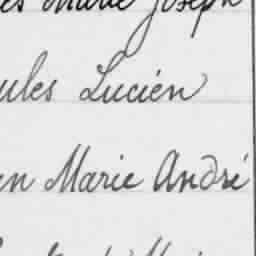 Marie Joseph
ules Lucien
en Marie André